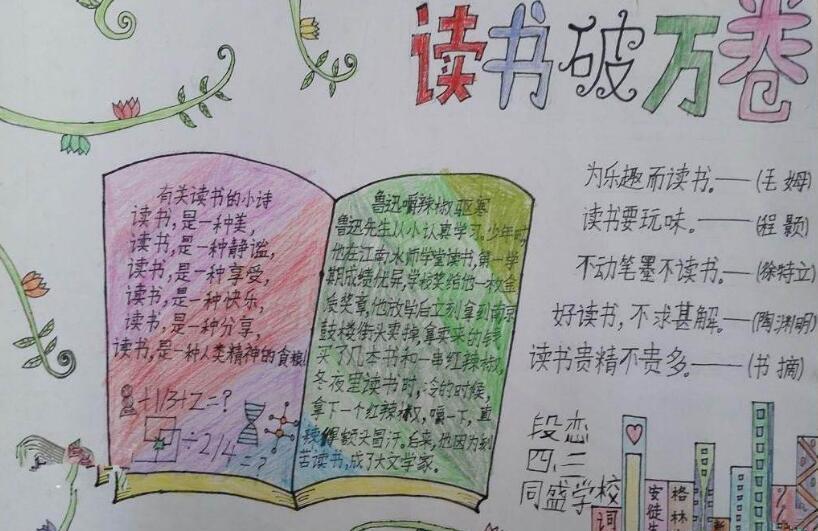 读书破万卷
有关读书的小诗
读书,是一种美,
读书,是一种静谧,
读书,是一种享受,
读书,是一种快乐,
读书,是一种分享,
读书,是一种人类精神的食粮!
+1/3+2=?
÷2/4
=?
鲁迅嚼辣椒驱寒
鲁迅先生从小认真学习。少年时,
他在江南水师学堂读书,第一学
期成绩优异,学校奖给他一枚金
质奖章,他放学后立刻拿到南京
鼓楼街头卖掉,拿卖来的钱
买了几本书和一串红辣椒。
冬夜里读书时,冷的时候,
拿下一个红辣椒,嚼一下,直
辣得额头冒汗。后来,他因为刻
苦读书,成了大文学家。
为乐趣而读书。——(毛姆)
读书要玩味。——(程颢)
不动笔墨不读书。——(徐特立)
好读书,不求甚解。——(陶渊明)
读书贵精不贵多。——(书摘)
段恋
四、二
同盛学校
词
安徒
格林